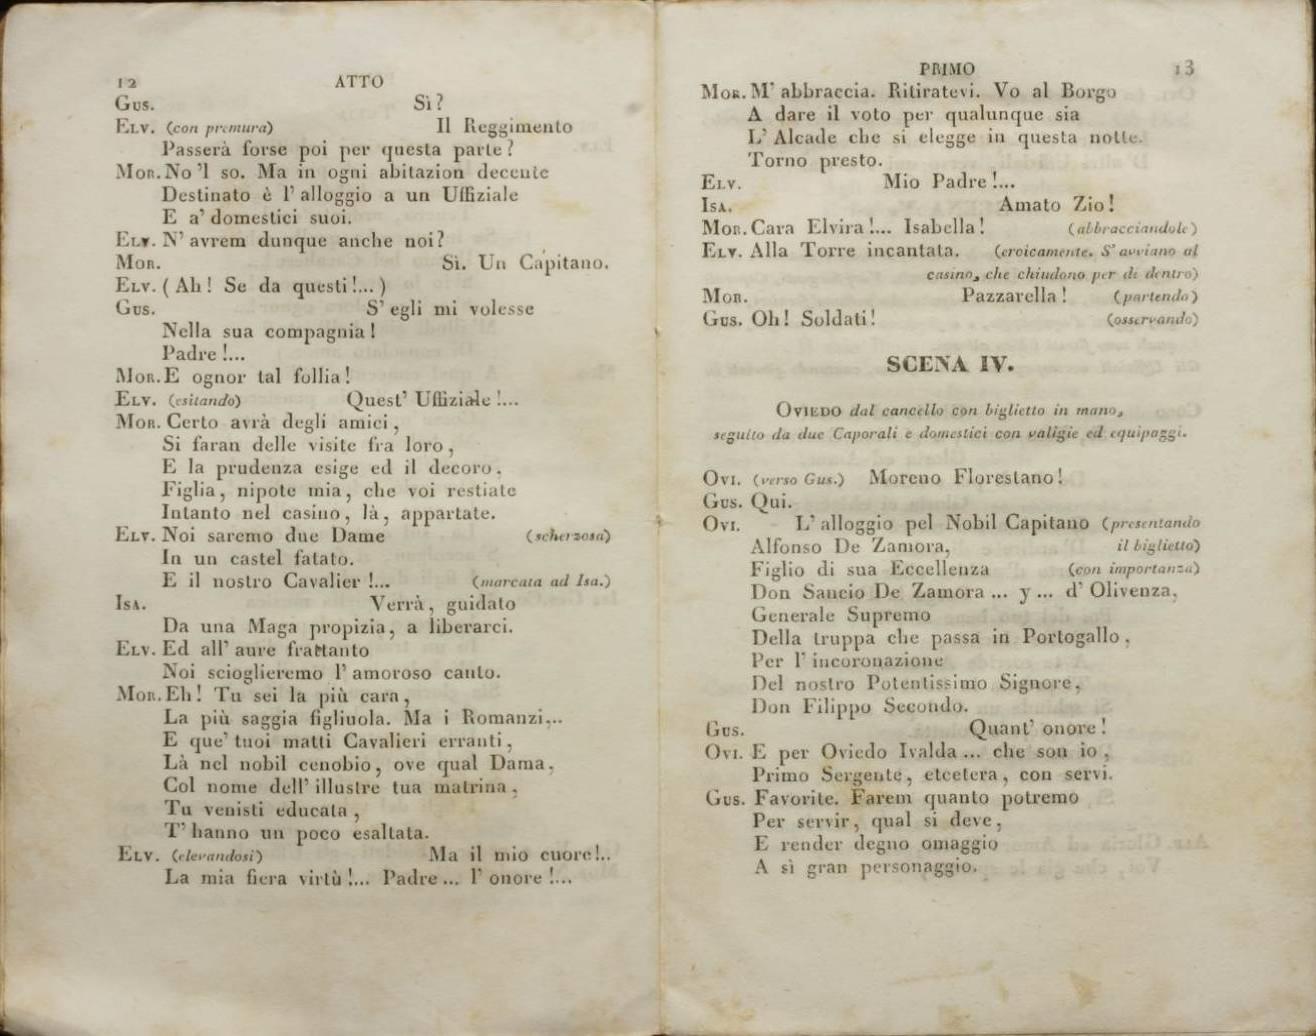 12 ATTO
Gus. Sì?
Elv. (con premura) Il Reggimento
Passerà forse poi per questa parte?
Mor. No 'l so. Ma in ogni abitazion decente
Destinato è l' alloggio a un Uffiziale
E a' domestici suoi.
Elv. N' avrem dunque anche noi?
Mor. Sì. Un Capitano.
Elv. (Ah! Se da questi!...)
Gus. S' egli mi volesse
Nella sua compagnia!
Padre!...
Mor. E ognor tal follia!
Elv. (esitando) Quest' Uffiziale!...
Mor. Certo avrà degli amici,
Si faran delle visite fra loro,
E la prudenza esige ed il decoro,
Figlia, nipote mia, che voi restiate
Intanto nel casino, là, appartate.
Elv. Noi saremo due Dame (scherzosa)
In un castel fatato.
E il nostro Cavalier!... (marcata ad Isa.)
Isa. Verrà, guidato
Da una Maga propizia, a liberarci.
Elv. Ed all' aure frattanto
Noi scioglieremo l' amoroso canto.
Mor. Eh! Tu sei la più cara,
La più saggia figliuola. Ma i Romanzi,..
E que' tuoi matti Cavalieri erranti,
Là nel nobil cenobio, ove qual Dama,
Col nome dell' illustre tua matrina,
Tu venisti educata,
T' hanno un poco esaltata.
Elv. (elevandosi) Ma il mio cuore!..
La mia fiera virtù!... Padre... l' onore!...
PRIMO 13
Mor. M' abbraccia. Ritiratevi. Vo al Borgo
A dare il voto per qualunque sia
L' Alcade che si elegge in questa notte.
Torno presto.
Elv. Mio Padre!...
Isa. Amato Zio!
Mor. Cara Elvira!... Isabella! (abbracciandole)
Elv. Alla Torre incantata. (eroicamente. S' avviano al
casino, che chiudono per di dentro)
Mor. Pazzarella! (partendo)
Gus. Oh! Soldati! (osservando)
SCENA IV.
Oviedo dal cancello con biglietto in mano,
seguito da due Caporali e domestici con valigie ed equipaggi.
Ovi. (verso Gus.) Moreno Florestano!
Gus. Qui.
Ovi. L' alloggio pel Nobil Capitano (presentando
Alfonso De Zamora, il biglietto)
Figlio di sua Eccellenza (con importanza)
Don Sancio De Zamora ... y ... d' Olivenza,
Generale Supremo
Della truppa che passa in Portogallo,
Per l' incoronazione
Del nostro Potentissimo Signore,
Don Filippo Secondo.
Gus. Quant' onore!
Ovi. E per Oviedo Ivalda ... che son io,
Primo Sergente, etcetera, con servi.
Gus. Favorite. Farem quanto potremo
Per servir, qual si deve,
E render degno omaggio
A sì gran personaggio.